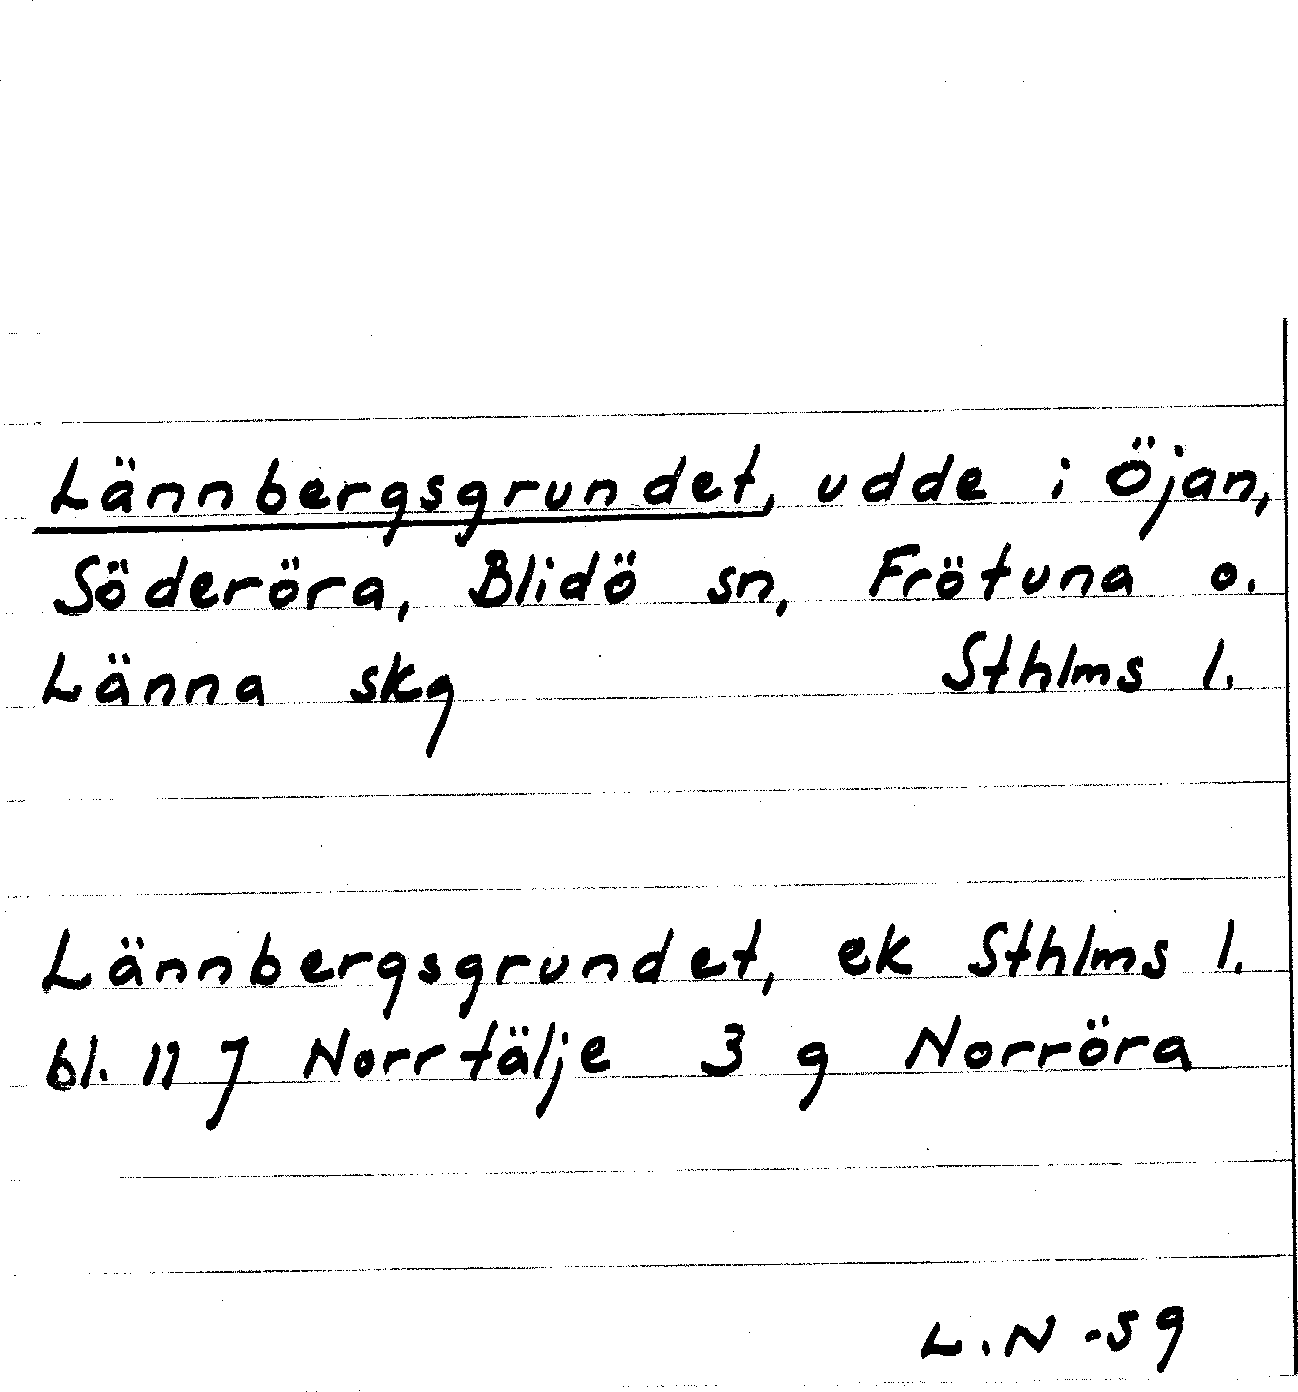 Lännbergsgrundet, udde i Öjan,
Söderöra, Blidö sn, Frötuna o.
Länna skg Sthlms l.
Lännbergsgrundet, ek Sthlms l.
bl. 11 J Norrtälje 3 g Norröra
L.N -59